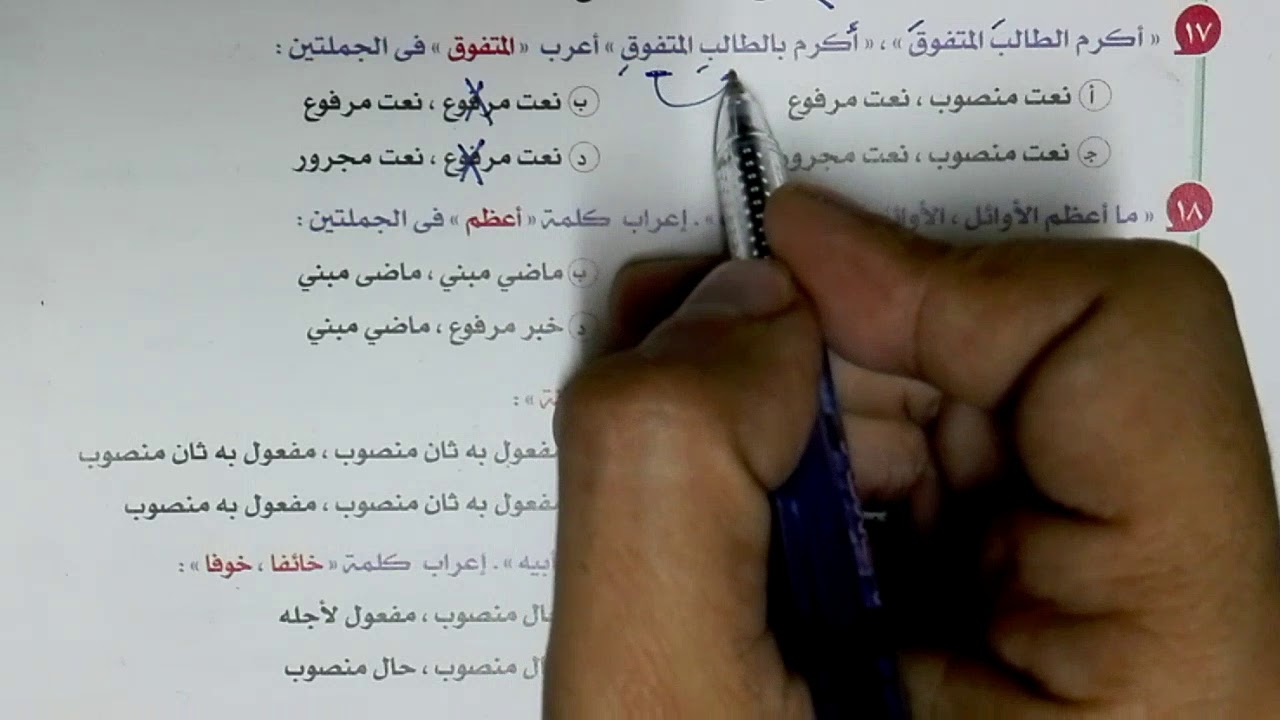 ١٧ « أكرم الطالبَ المتفوقَ » ، « أكرم بالطالبِ المتفوقِ » أعرب « المتفوق » فى الجملتين :
أ نعت منصوب ، نعت مرفوع
ب نعت مرفوع ، نعت مرفوع
ج نعت منصوب ، نعت مجرور
د نعت مرفوع ، نعت مجرور
١٨ « ما أعظم الأوائل ، ». إعراب كلمة « أعظم » فى الجملتين :
ب ماضي مبني ، ماضى مبني
د خبر مرفوع ، ماضي مبني
مفعول به ثان منصوب ، مفعول به ثان منصوب
مفعول به ثان منصوب ، مفعول به منصوب
». إعراب كلمة « خائفا ، خوفا » :
منصوب ، مفعول لأجله
منصوب ، حال منصوب